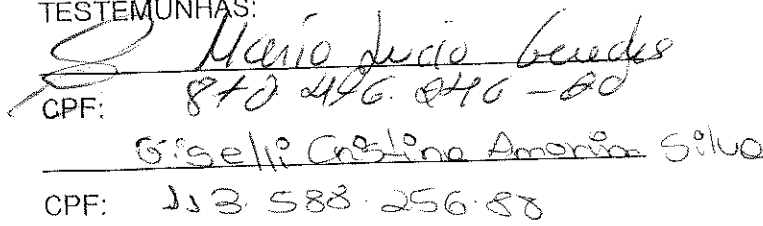 TESTEMUNHAS:
Mario Lucio Guedes
CPF: 870 496. 246-60
Giselli Cristina Amorim Silva
CPF: 113. 588. 256. 88